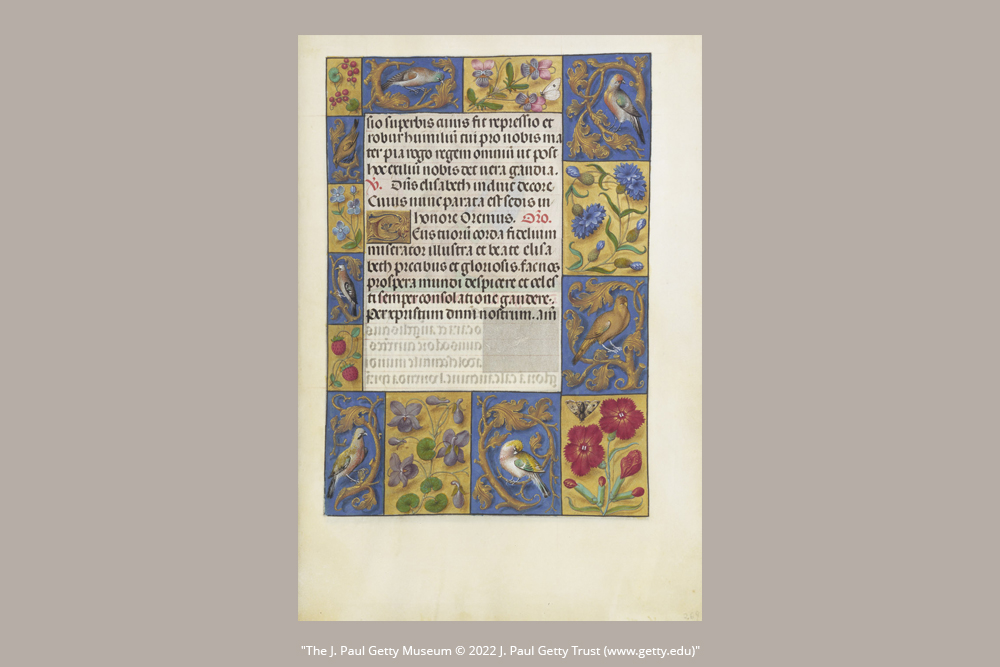 sio superbis cuius fit repressio et
robur humiliū tui pro nobis ma
ter pia rogo regem omniū ut post
hoc exiliū nobis det vera gaudia.
V. Dn̄s elisabeth induit decore
Cuius nunc parata est sedis in
honore Oremus. Orō.
Eus tuorū corda fidelium
miserator illustra et beate elisa
beth precibus et gloriosis. fac nos
prospera mundi despicere et celes
ti semper consolatione gaudere.
Per xp̄istum dnm̄ nostrum. Am̄
"The J. Paul Getty Museum © 2022 J. Paul Getty Trust (www.getty.edu)"